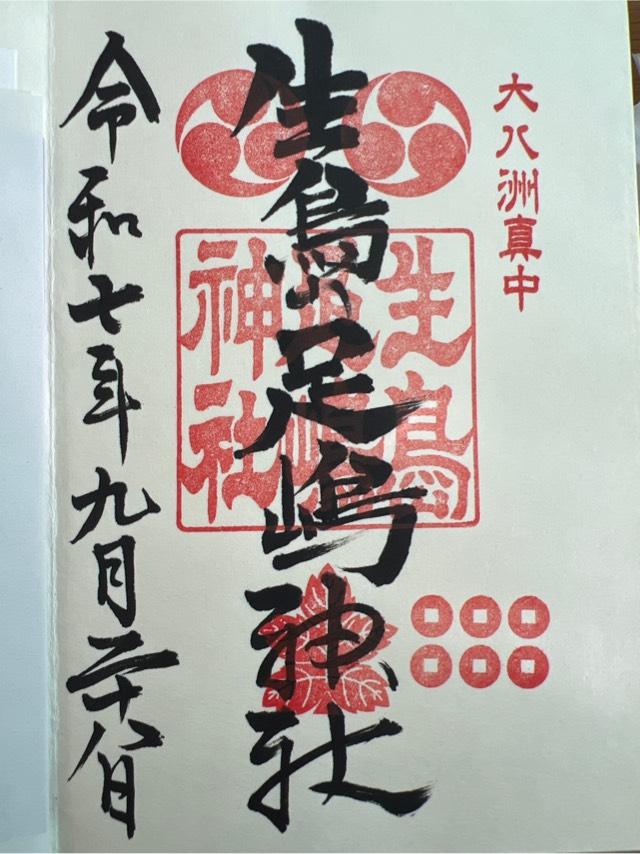 大八洲真中
生島足嶋神社
生島
足嶋
神社
令和七年九月二十八日